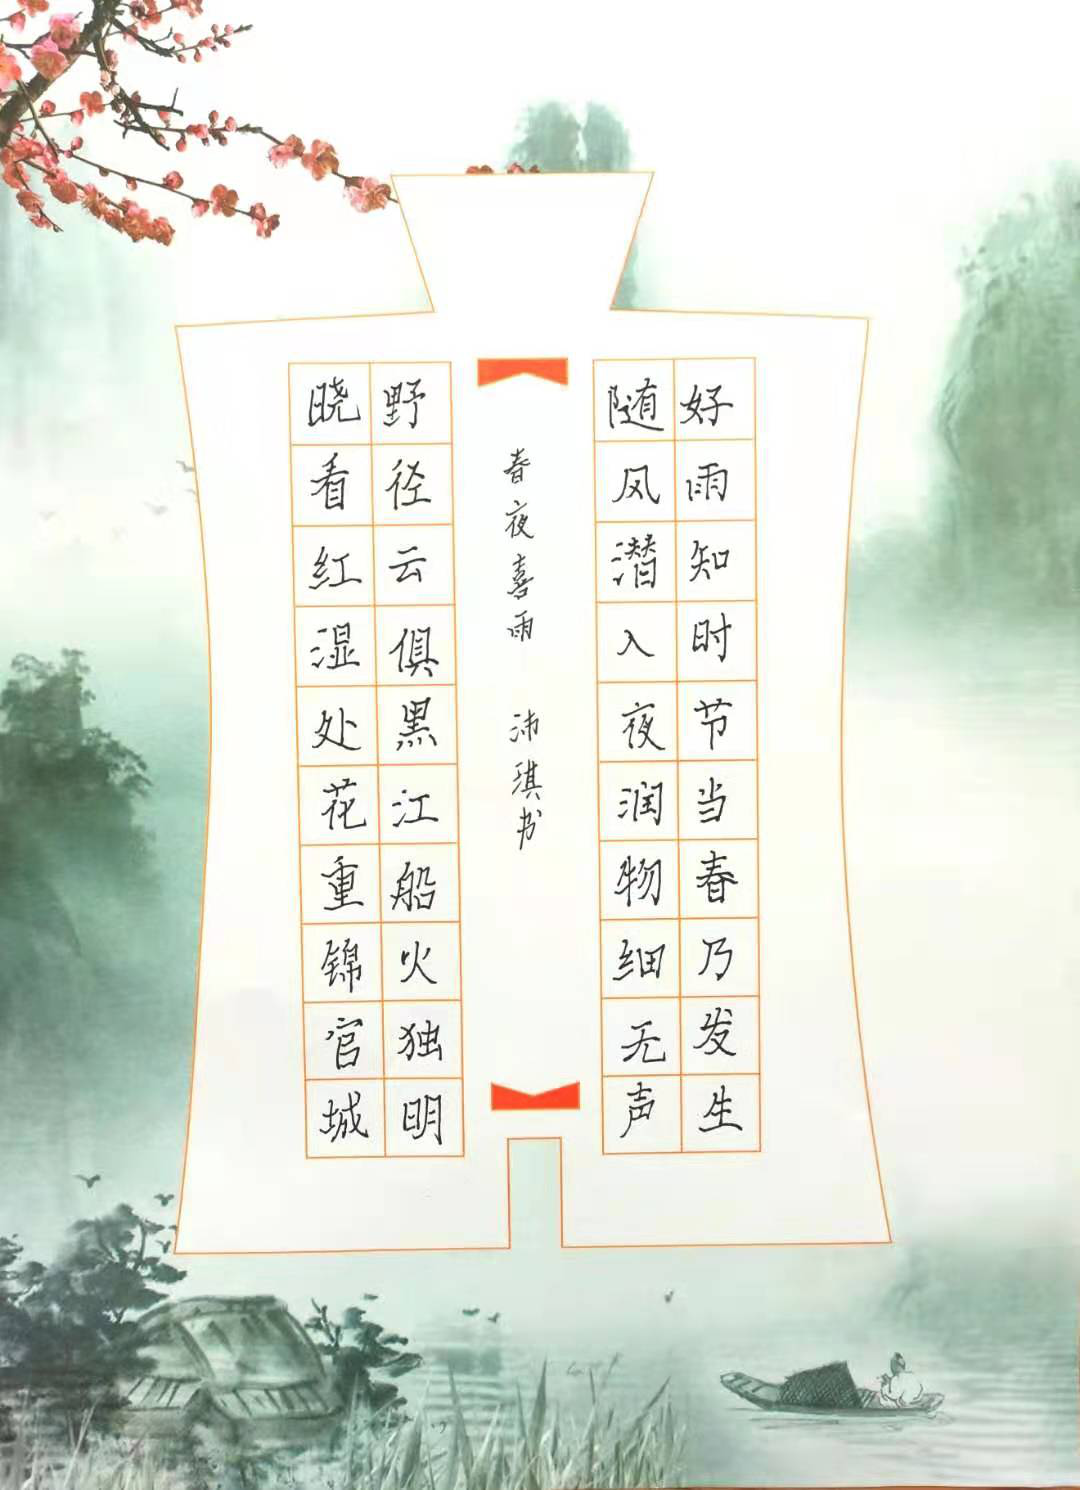 好雨知时节当春乃发生
随风潜入夜润物细无声
春夜喜雨 沛琪书
野径云俱黑江船火独明
晓看红湿处花重锦官城